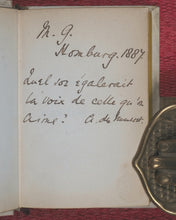 M. G.
Homburg. 1887
Quel sot égalerait
la voix de celle qu'on
aime? A. de Musset.